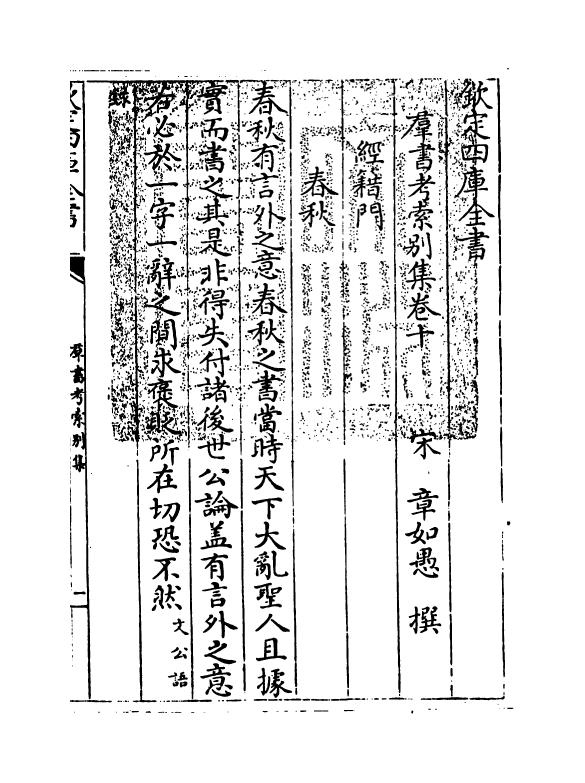 欽定四庫全書
羣書考索別集卷十
宋 章如愚 撰
經籍門
春秋
春秋有言外之意春秋之書當時天下大亂聖人且據
實而書之其是非得失付諸後世公論盖有言外之意
若必於一字一辭之間求褒貶所在切恐不然文公語
錄
欽定四庫全書
羣書考索別集
一